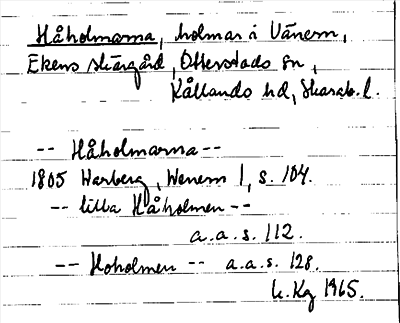 Håholmarna, holmar i Vänern,
Ekens skärgård, Otterstads sn,
Kållands hd, Skarab. l.
-- Håholmarna --
1805 Warberg, Wenern 1, s. 104.
-- lilla Håholmen --
a.a.s. 112.
-- Hoholmen -- a.a.s. 128.
L. Kg 1965.